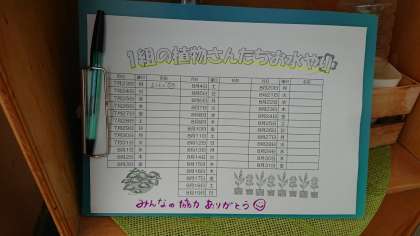 1組の植物さんたちお水やり
月日 曜日 名前
7月23日 月
7月24日 火
7月25日 水
7月26日 木
7月27日 金
7月28日 土
7月29日 日
7月30日 月
7月31日 火
8月1日 水
8月2日 木
8月3日 金
月日 曜日 名前
8月4日 土
8月5日 日
8月6日 月
8月7日 火
8月8日 水
8月9日 木
8月10日 金
8月11日 土
8月12日 日
8月13日 月
8月14日 火
8月15日 水
8月16日 木
8月17日 金
8月18日 土
8月19日 日
月日 曜日 名前
8月20日 月
8月21日 火
8月22日 水
8月23日 木
8月24日 金
8月25日 土
8月26日 日
8月27日 月
8月28日 火
8月29日 水
8月30日 木
8月31日 金
みんなの協力ありがとう